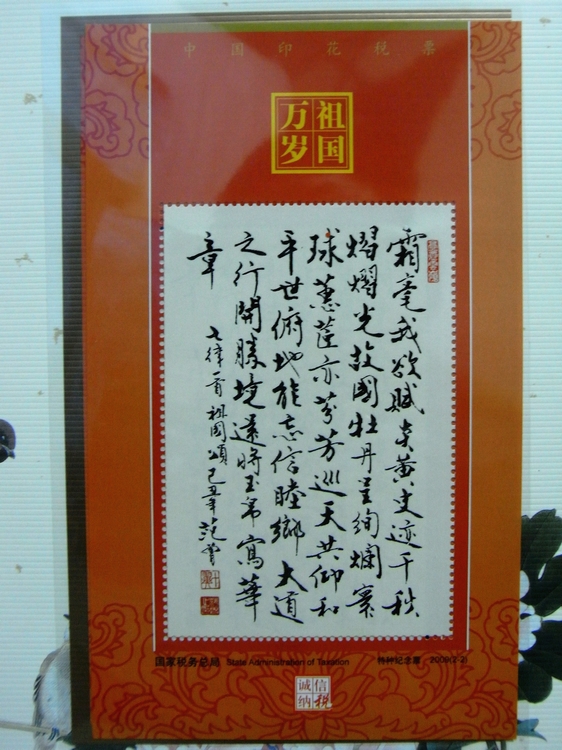 中国印花税票
祖国
万岁
霜毫我欲赋炎黄史迹千秋
熠熠光故國牡丹呈绚爛寰
球蕙茝亦芬芳巡天共仰和
平世俯地能忘信睦鄉大道
之行開勝境還將玉帛寫華
章
七律一首祖國頌己丑年范曾
国家税务总局 State Administration of Taxation 特种纪念票 2009(2-2)
诚信
纳税